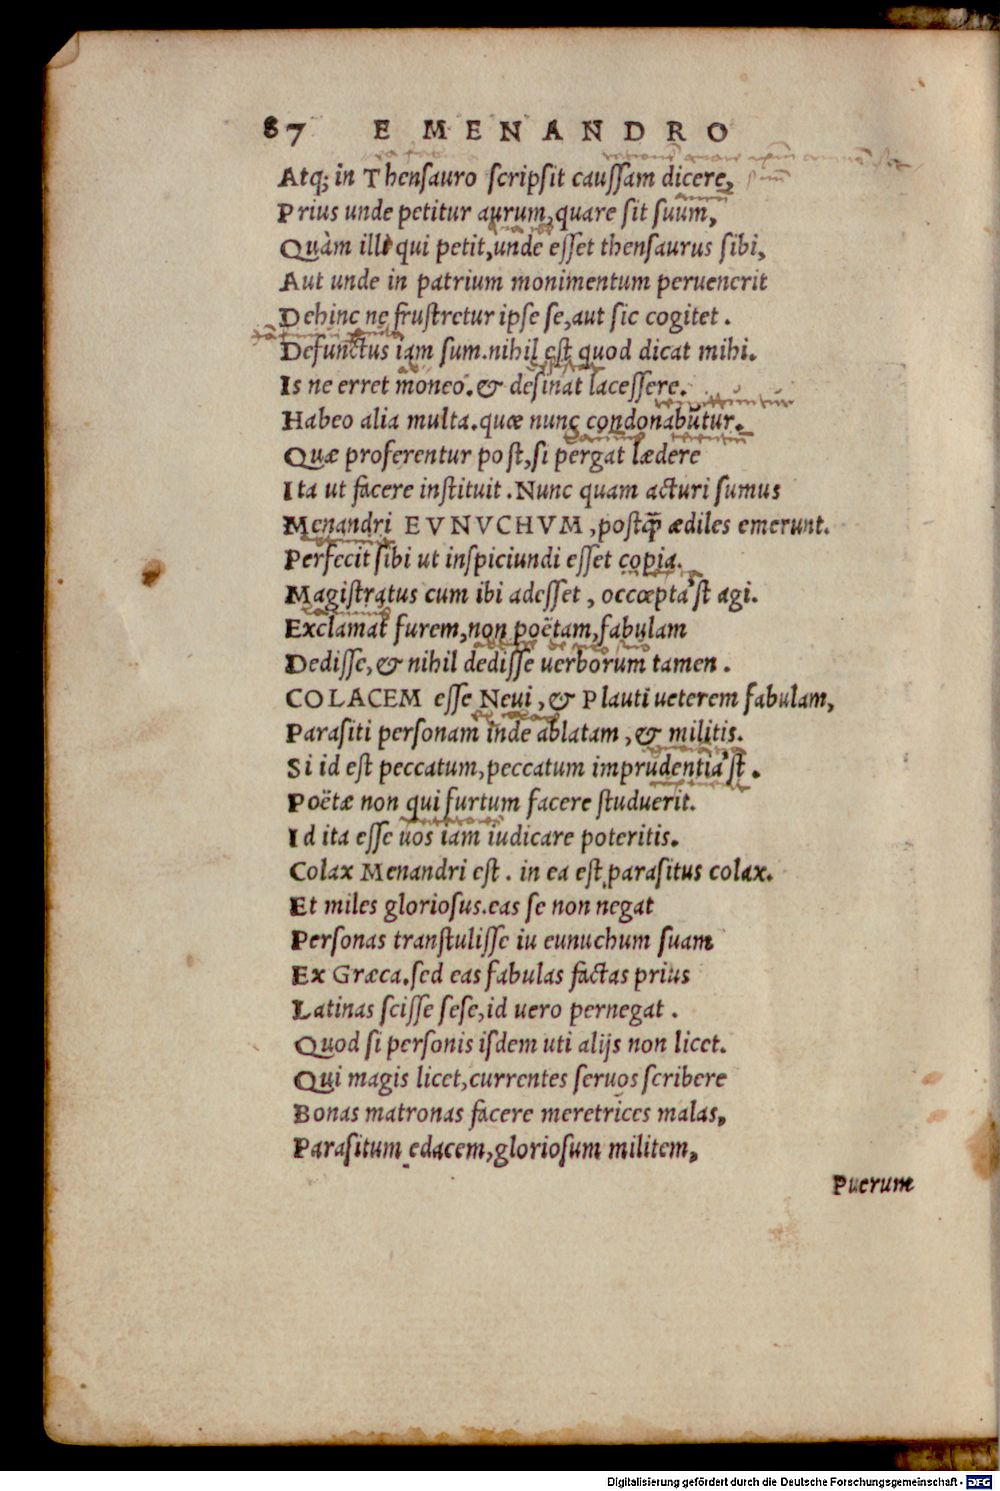 87 E MENANDRO
Atq; in Thensauro scripsit caussam dicere,
Prius unde petitur aurum, quare sit suum,
Quàm ille qui petit, unde esset thensaurus sibi,
Aut unde in patrium monimentum peruenerit
Dehinc ne frustretur ipse se, aut sic cogitet.
Defunctus iam sum. nihil est quod dicat mihi.
Is ne erret moneo. & desinat lacessere.
Habeo alia multa. quæ nunc condonabūtur.
Quæ proferentur post, si pergat lædere
Ita ut facere instituit. Nunc quam acturi sumus
Menandri EVNVCHVM, postq̃ ædiles emerunt.
Perfecit sibi ut inspiciundi esset copia.
Magistratus cum ibi adesset, occœpta'st agi.
Exclamat furem, non poëtam, fabulam
Dedisse, & nihil dedisse uerborum tamen.
COLACEM esse Neui, & Plauti ueterem fabulam,
Parasiti personam inde ablatam, & militis.
Si id est peccatum, peccatum imprudentia'st.
Poëtæ non qui furtum facere studuerit.
Id ita esse uos iam iudicare poteritis.
Colax Menandri est. in ea est parasitus colax.
Et miles gloriosus. eas se non negat
Personas transtulisse iu eunuchum suam
Ex Græca. sed eas fabulas factas prius
Latinas scisse sese, id uero pernegat.
Quod si personis isdem uti alijs non licet.
Qui magis licet, currentes seruos scribere
Bonas matronas facere meretrices malas,
Parasitum edacem, gloriosum militem,
Puerum
Digitalisierung gefördert durch die Deutsche Forschungsgemeinschaft - DFG